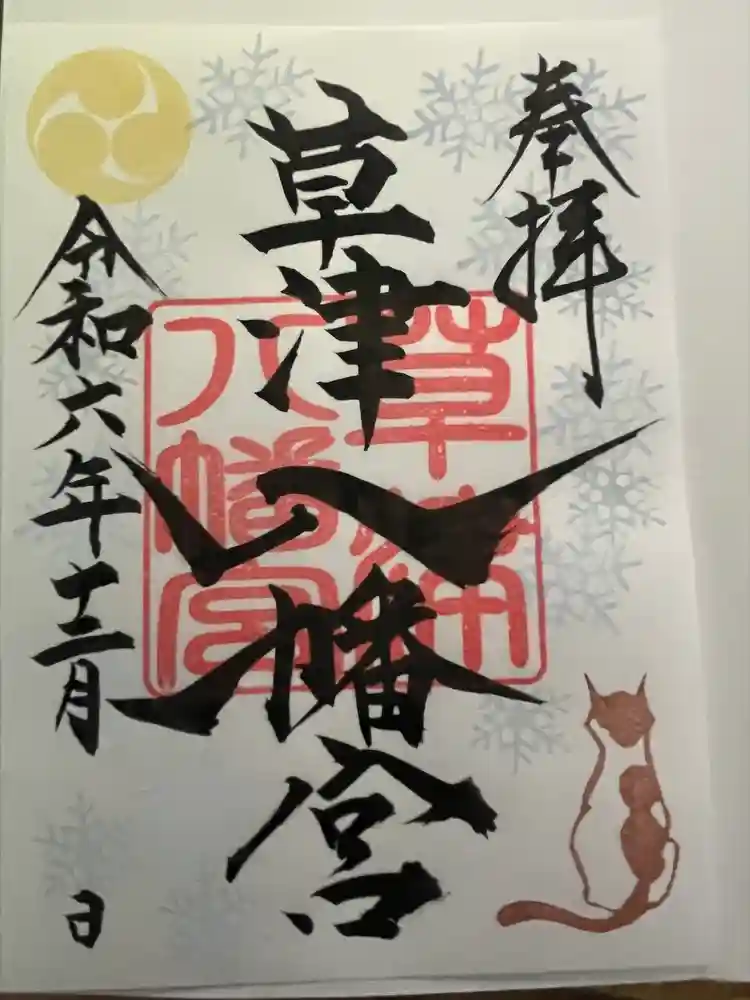 奉拝
草津八幡宮
草津
八幡宮
令和六年十二月
日